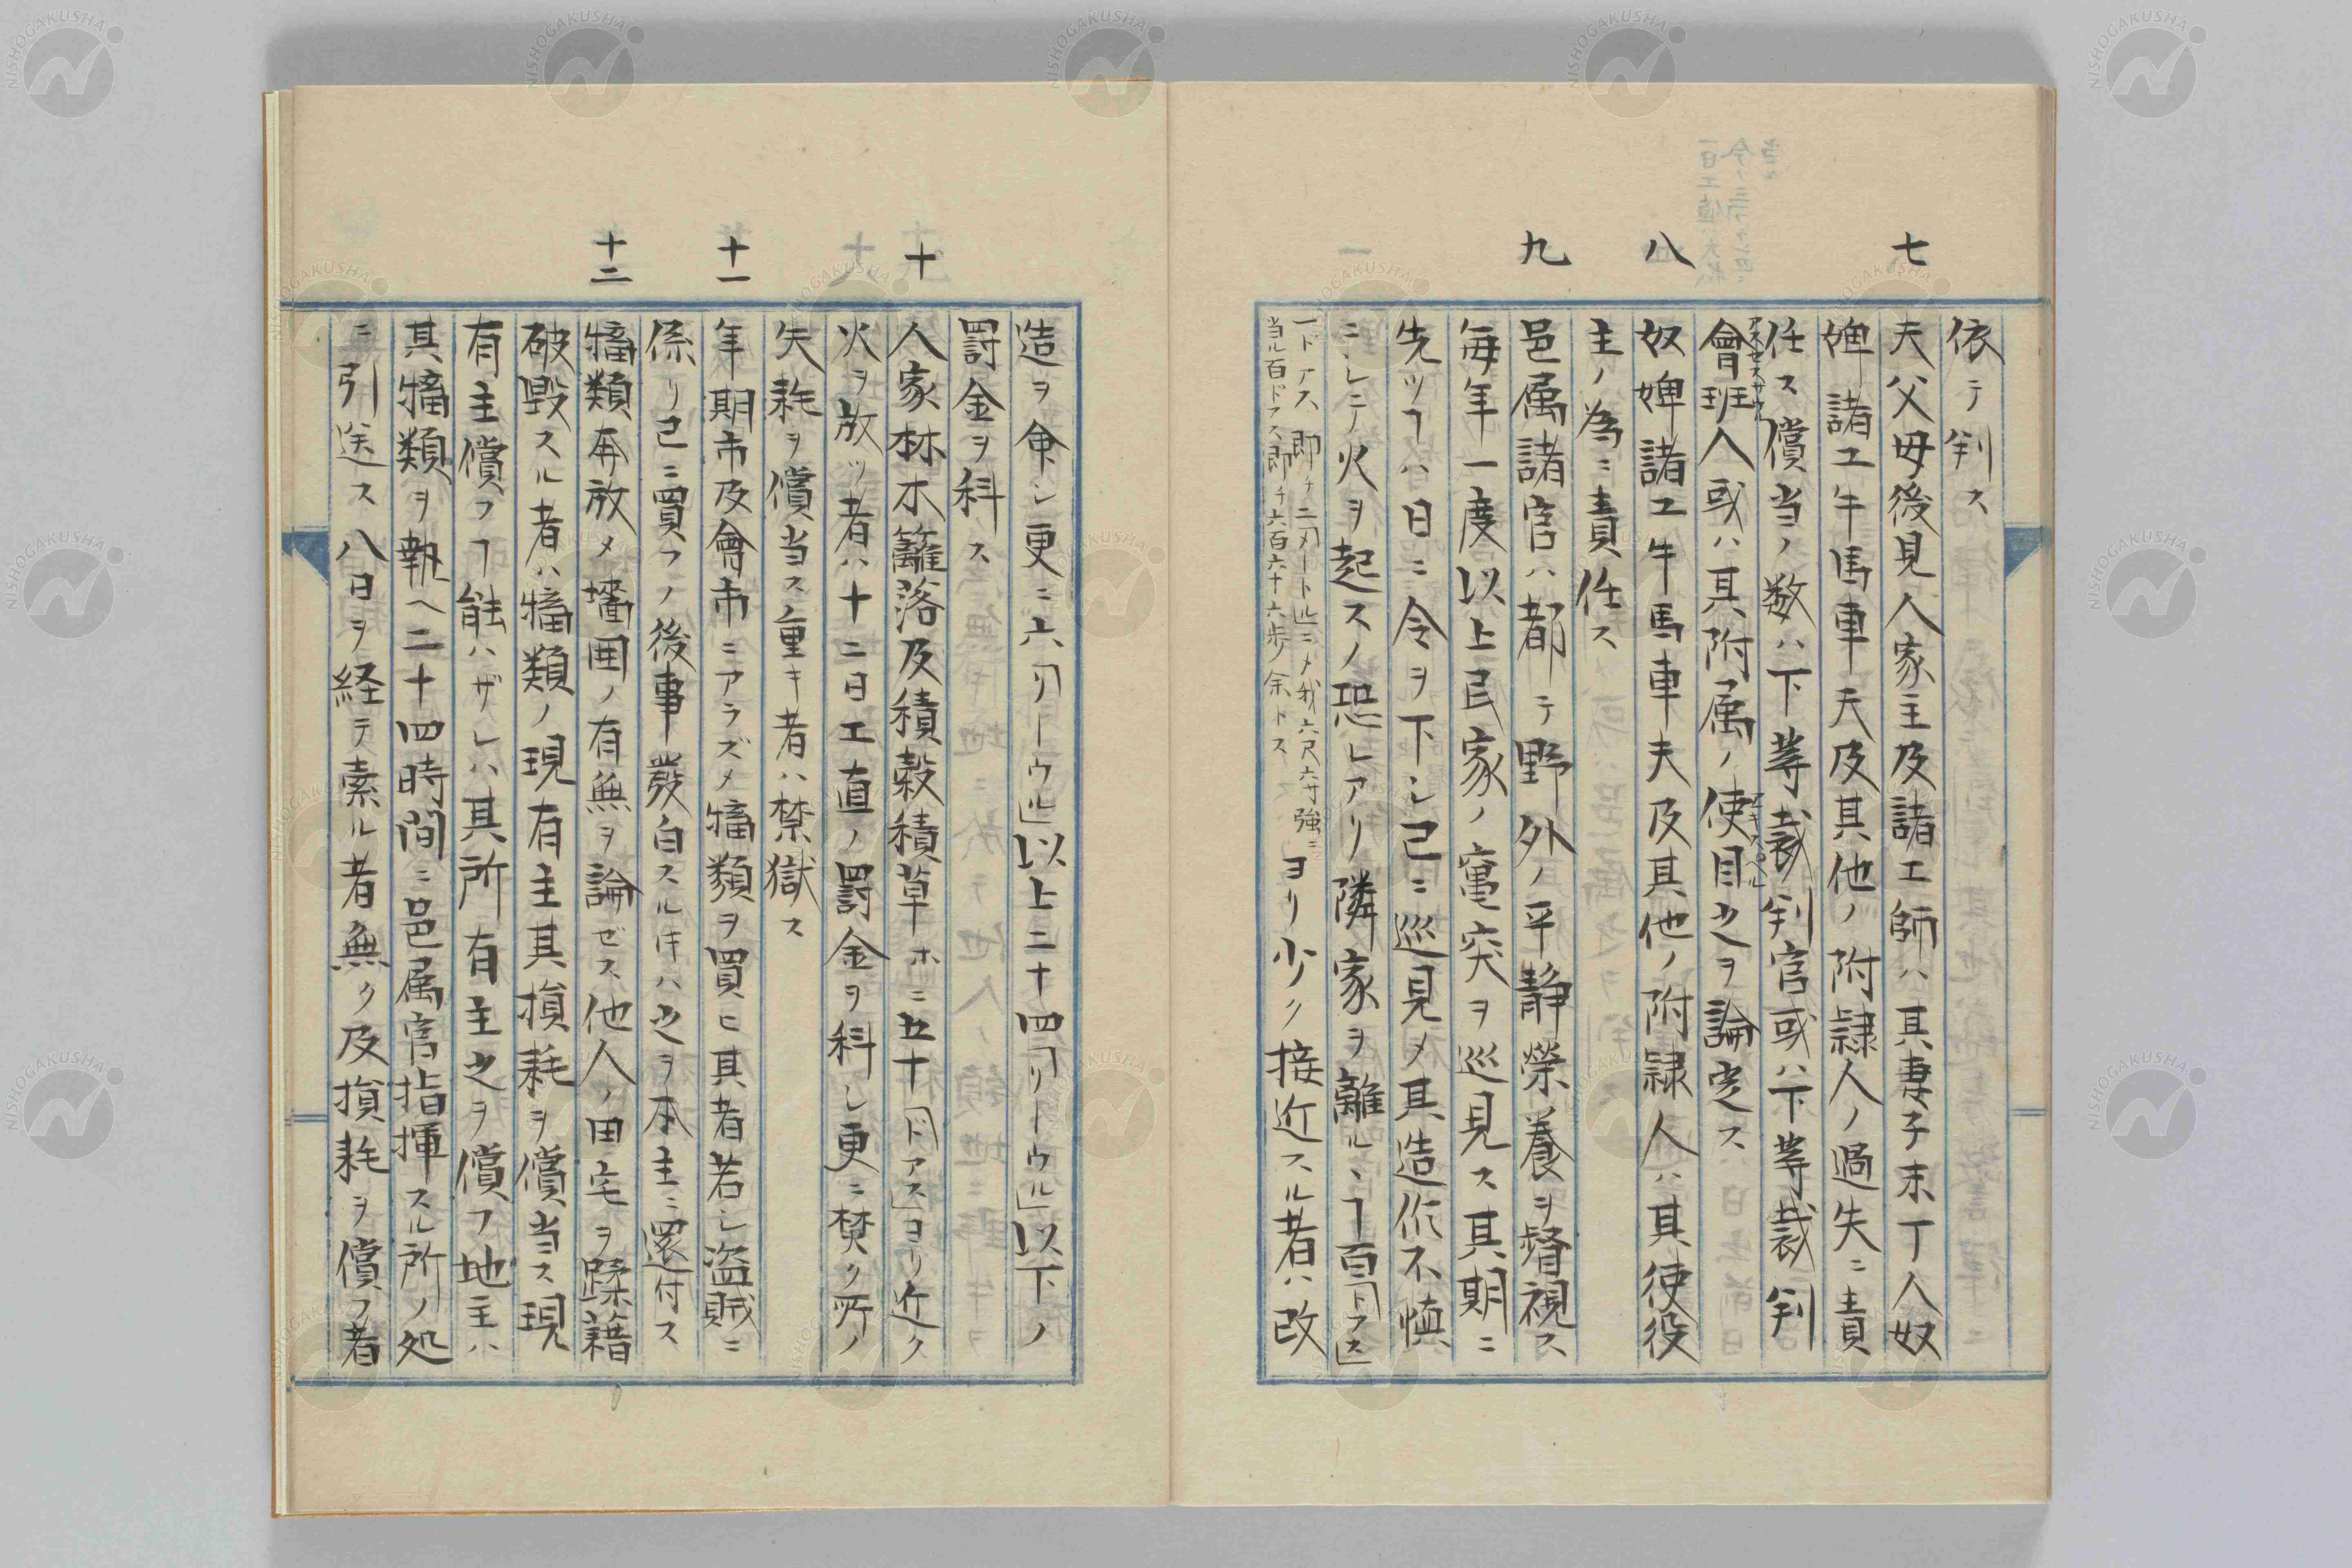 七
依テ判ス
夫父母後見人家主及諸工師ハ其妻子末丁人奴
婢諸工牛馬車夫及其他ノ附隷人ノ過失ニ責
任ス償当ノ数ハ下等裁判官或ハ下等裁判
會班人或ハ其附属ノ使目之ヲ論定ス
八
奴婢諸工牛馬車夫及其他ノ附隷人ハ其使役
主ノ為ニ責任ス
九
邑属諸官ハ都テ野外ノ平静榮養ヲ督視ス
毎年一度以上民家ノ竃突ヲ巡見ス其期ニ
先ツヿハ日ニ令ヲ下シ已ニ巡見メ其造作不慎
ニシテ火ヲ起スノ恐レアリ隣家ヲ離ルヽヿ百「ドアス」
一ドアス即チ二「メートル」ニメ我六尺六寸強ニ
当ル百ドアス即チ六百六十六歩ノ余トス
ヨリ少ク接近スル者ハ改
造ヲ命シ更ニ六「リーウル」以上二十四「リーウル」以下ノ
罰金ヲ科ス
十
人家林木籬落及積穀積草ホニ五十「ドアス」ヨリ近ク
火ヲ放ツ者ハ十二日工直ノ罰金ヲ科シ更ニ焚ク所ノ
失耗ヲ償当ス重キ者ハ禁獄ス
十一
年期市及會市ニアラズメ犕類ヲ買ヒ其者若シ盗賊ニ
係リ已ニ買フノ後事發白スル㕝ハ之ヲ本主ニ還付ス
十二
犕類再放メ墻囲ノ有無ヲ論ゼス他人ノ田宅ヲ蹂藉
破毀スル者ハ犕類ノ現有主其損耗ヲ償当ス現
有主償フヿ能ハザレハ其所有主之ヲ償フ地主ハ
其犕類ヲ執ヘ二十四時間ニ邑属官指揮スル所ノ処
ニ引送ス八日ヲ経テ索ル者無ク及損耗ヲ償フ者